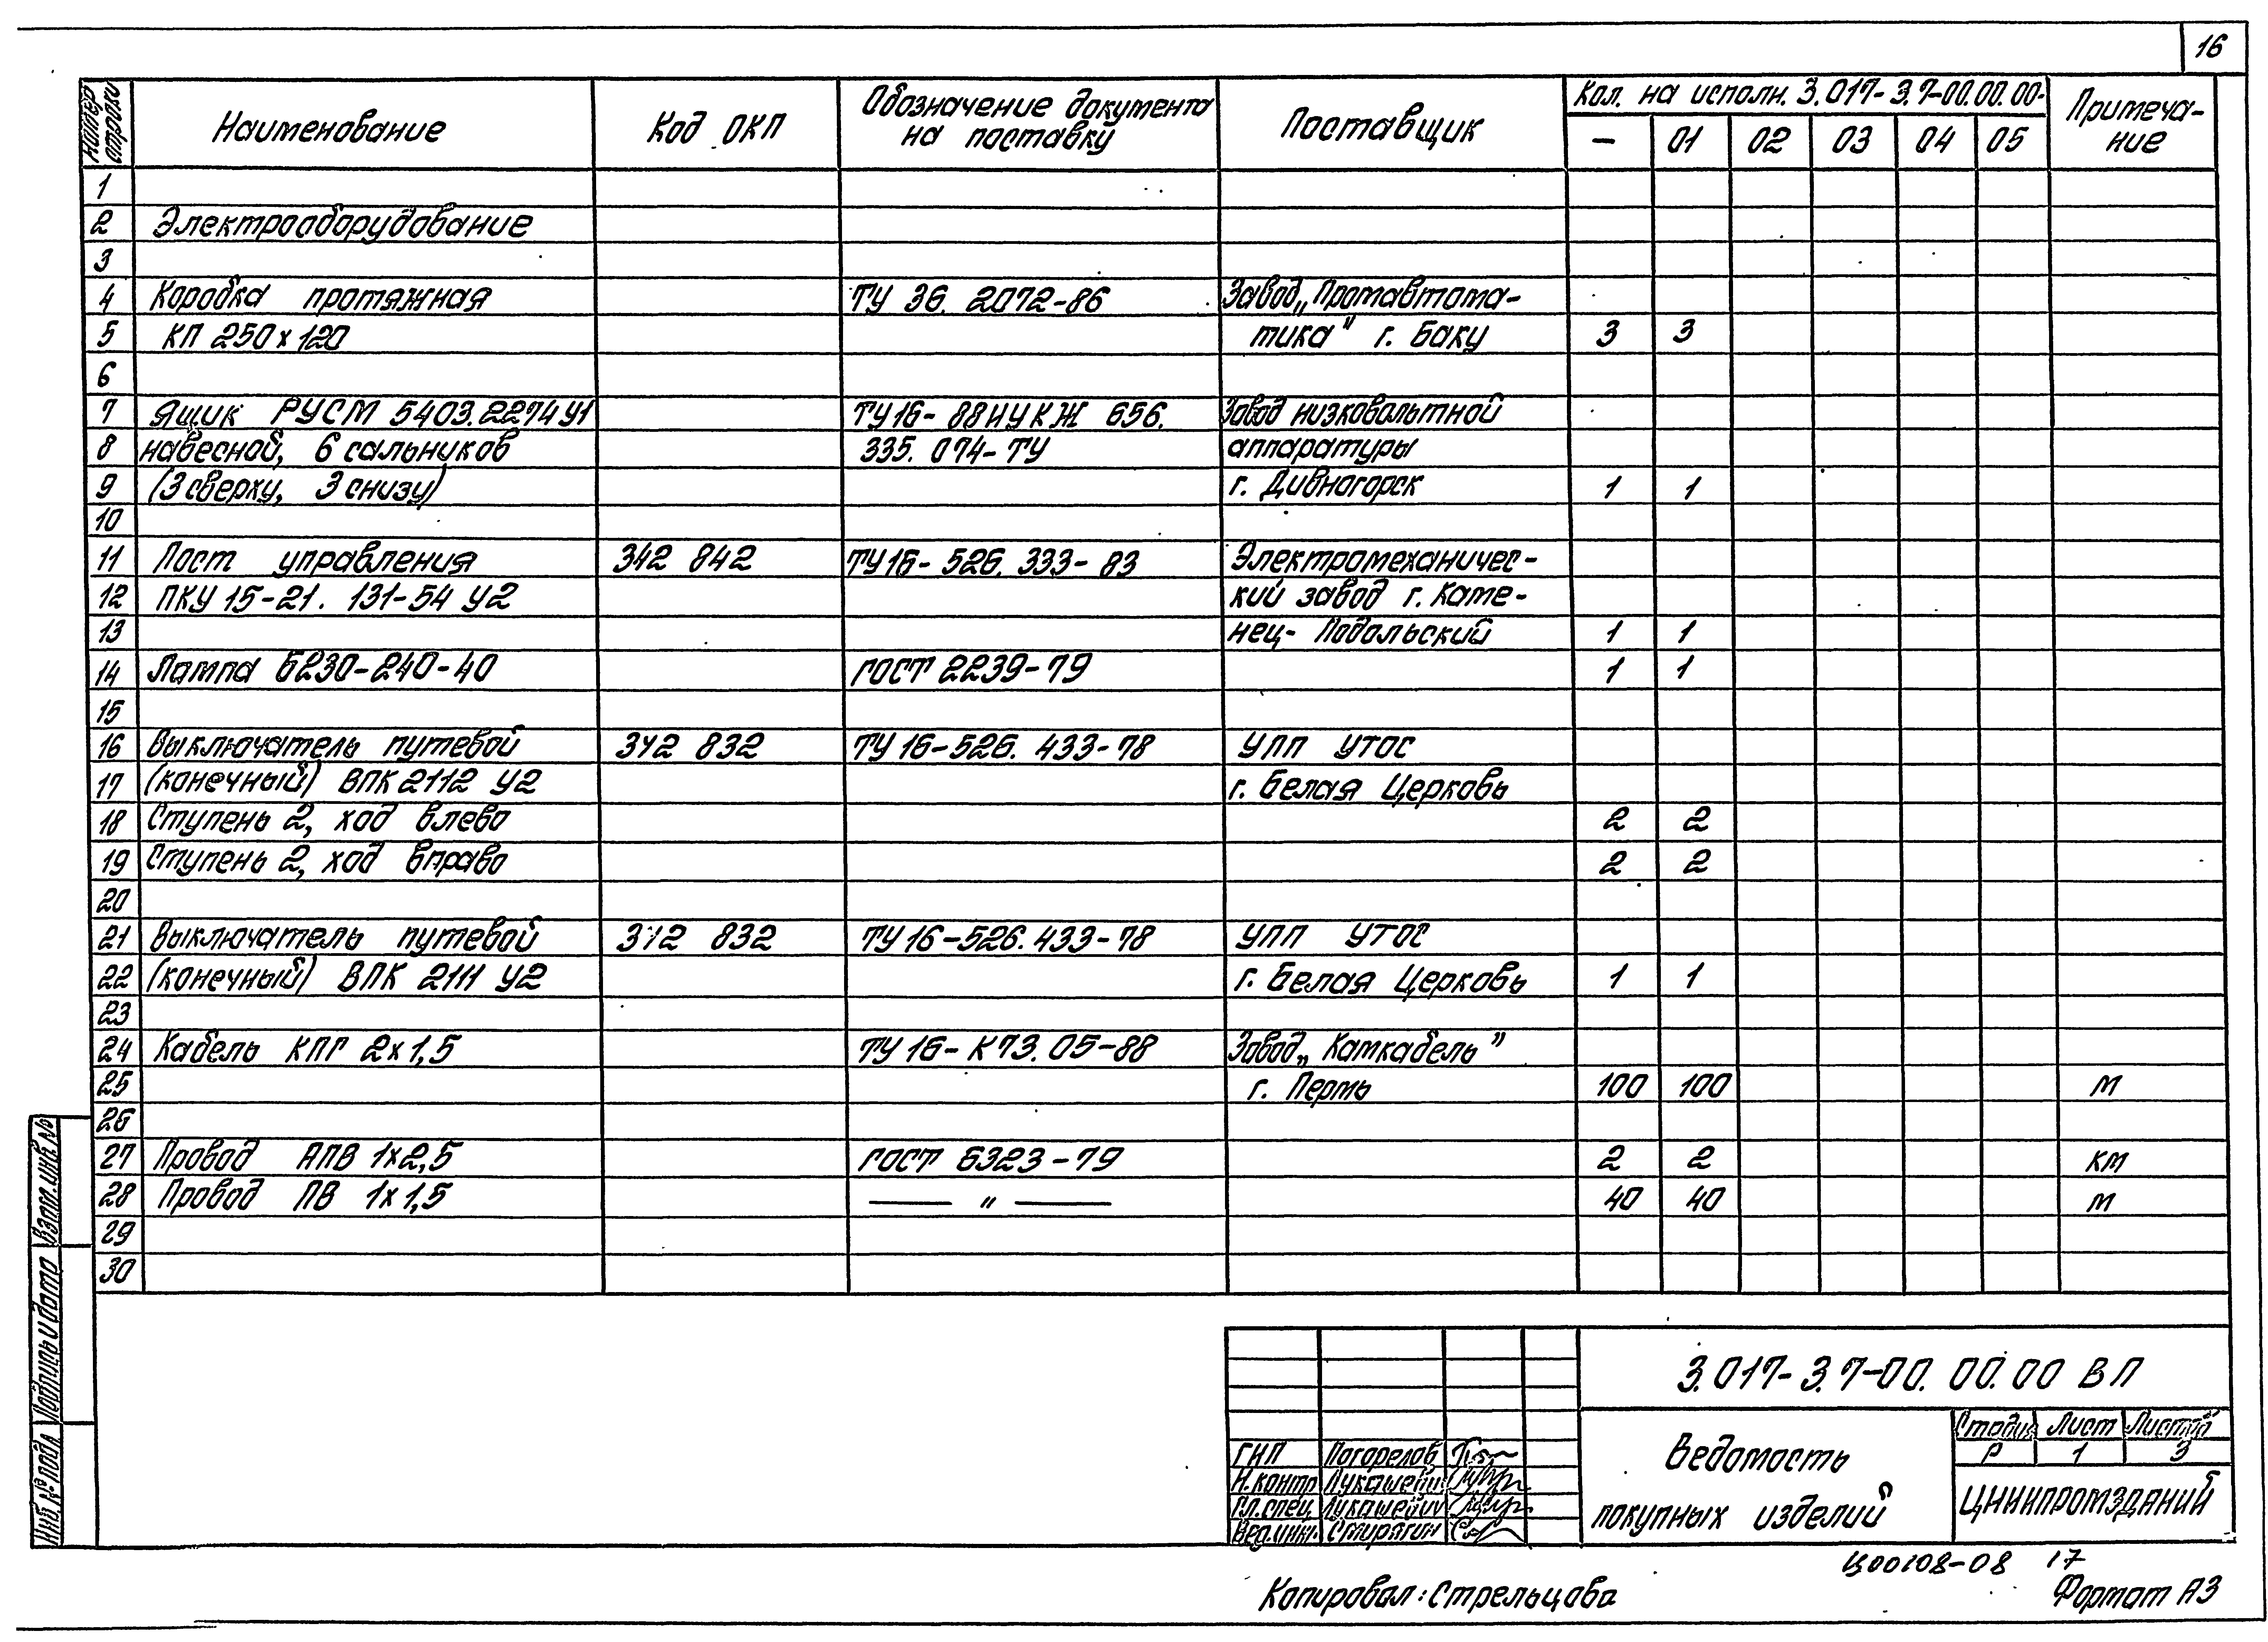 16
Номер строки
Наименование
Код ОКП
Обозначение документа на поставку
Поставщик
Кол. на исполн. 3.017-3.7-00.00.00-
Примеча-
ние
— 01 02 03 04 05
1
2 Электрооборудование
3
4 Коробка протяжная ТУ 36. 2072-86 Завод „Промавтома-
5 КП 250х120 тика" г. Баку 3 3
6
7 Ящик РУСМ 5403.2274У1 ТУ16-88ИУКЖ 656. Завод низковольтной
8 навесной, 6 сальников 335. 074-ТУ аппаратуры
9 (3 сверху, 3 снизу) г. Дивногорск 1 1
10
11 Пост управления 342 842 ТУ16-526. 333-83 Электромеханичес-
12 ПКУ 15-21. 131-54 У2 кий завод г. Каме-
13 нец-Подольский 1 1
14 Лампа Б230-240-40 ГОСТ 2239-79 1 1
15
16 Выключатель путевой 342 832 ТУ 16-526. 433-78 УПП УТОС
17 (конечный) ВПК 2112 У2 г. Белая Церковь
18 Ступень 2, ход влево 2 2
19 Ступень 2, ход вправо 2 2
20
21 Выключатель путевой 342 832 ТУ 16-526. 433-78 УПП УТОС
22 (конечный) ВПК 2111 У2 г. Белая Церковь 1 1
23
24 Кабель КПГ 2х1,5 ТУ 16-К73. 05-88 Завод „Камкабель"
25 г. Пермь 100 100 м
26
27 Провод АПВ 1х2,5 ГОСТ 6323-79 2 2 км
28 Провод ПВ 1х1,5 — " — 40 40 м
29
30
Взам. инв. №
Подпись и дата
Инв. № подл.
3.017-3.7-00.00.00 ВП
Ведомость
покупных изделий
Стадия Лист Листов
Р 1 3
ЦНИИПРОМЗДАНИЙ
ГИП Погорелов
Н.контр Лукашевич
Гл.спец. Лукашевич
Вед.инж. Стирягин
Ц00108-08 17
Копировал: Стрельцова
Формат А3